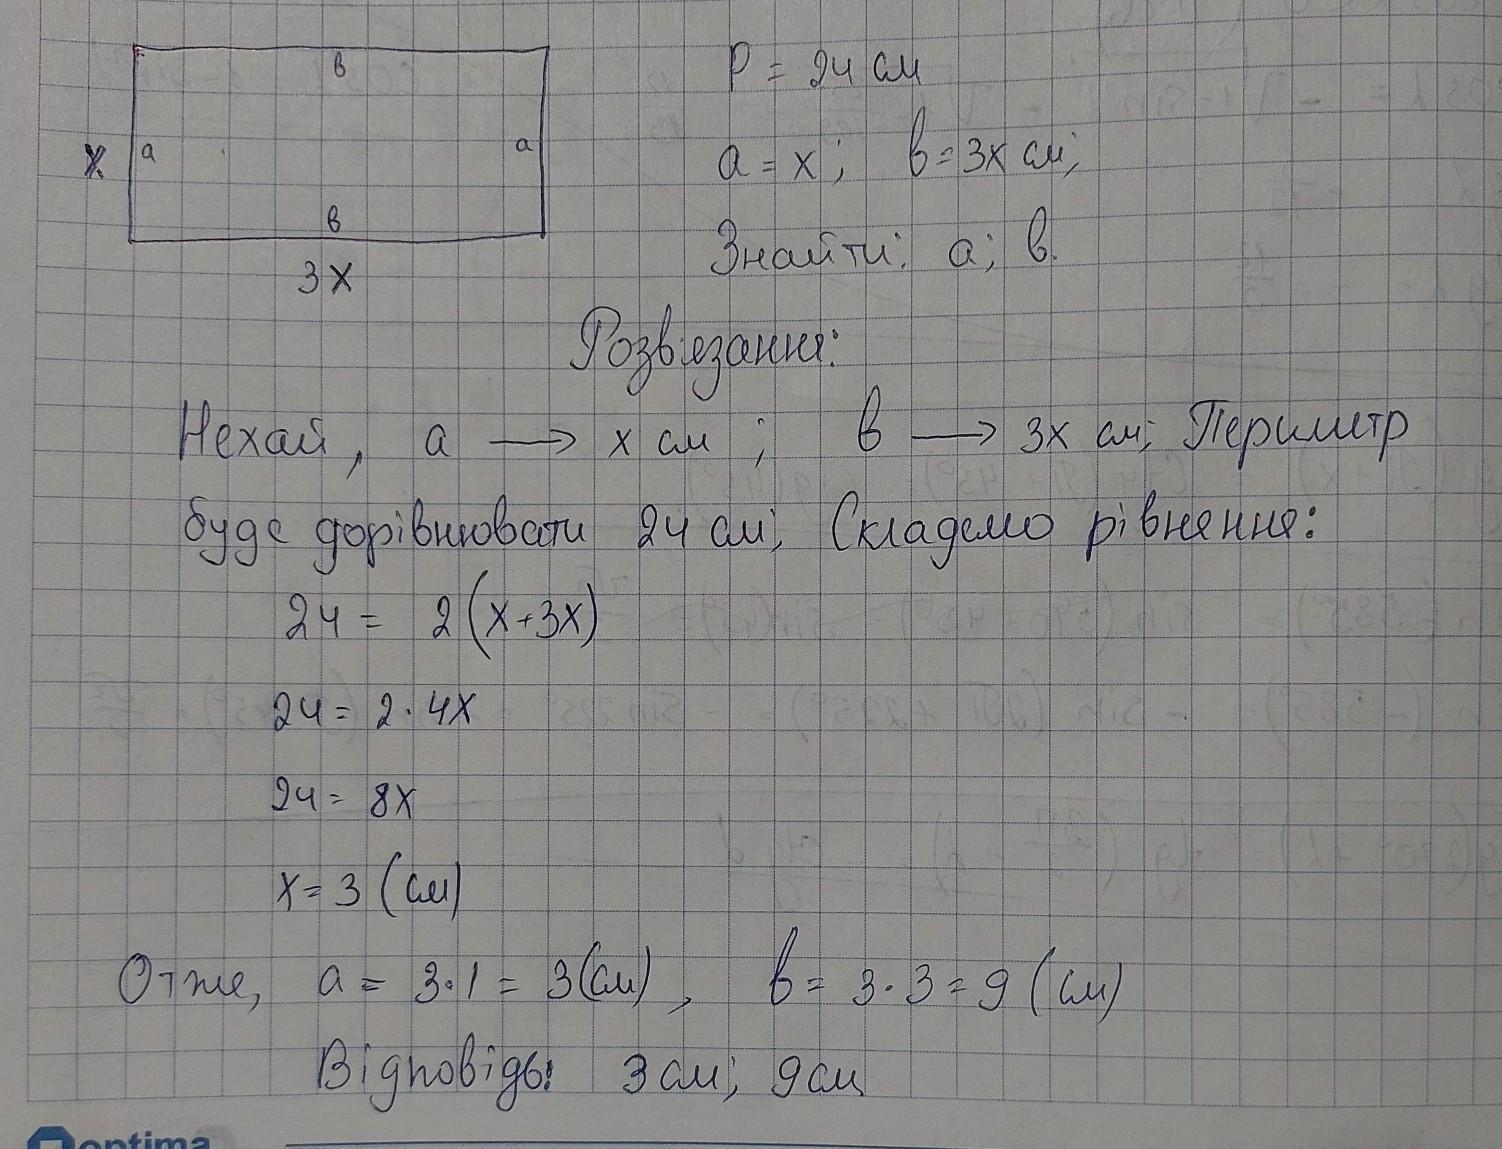 в
P = 24 см
x a a
a = x; в = 3x см;
в
Знайти: a; в.
3x
Розв'язання:
Нехай, a → x см; в → 3x см; Периметр
буде дорівнювати 24 см; Складемо рівняння:
24 = 2(x+3x)
24 = 2·4x
24 = 8x
x = 3 (см)
Отже, a = 3·1 = 3(см), в = 3·3 = 9 (см)
Відповідь: 3 см; 9 см
optima